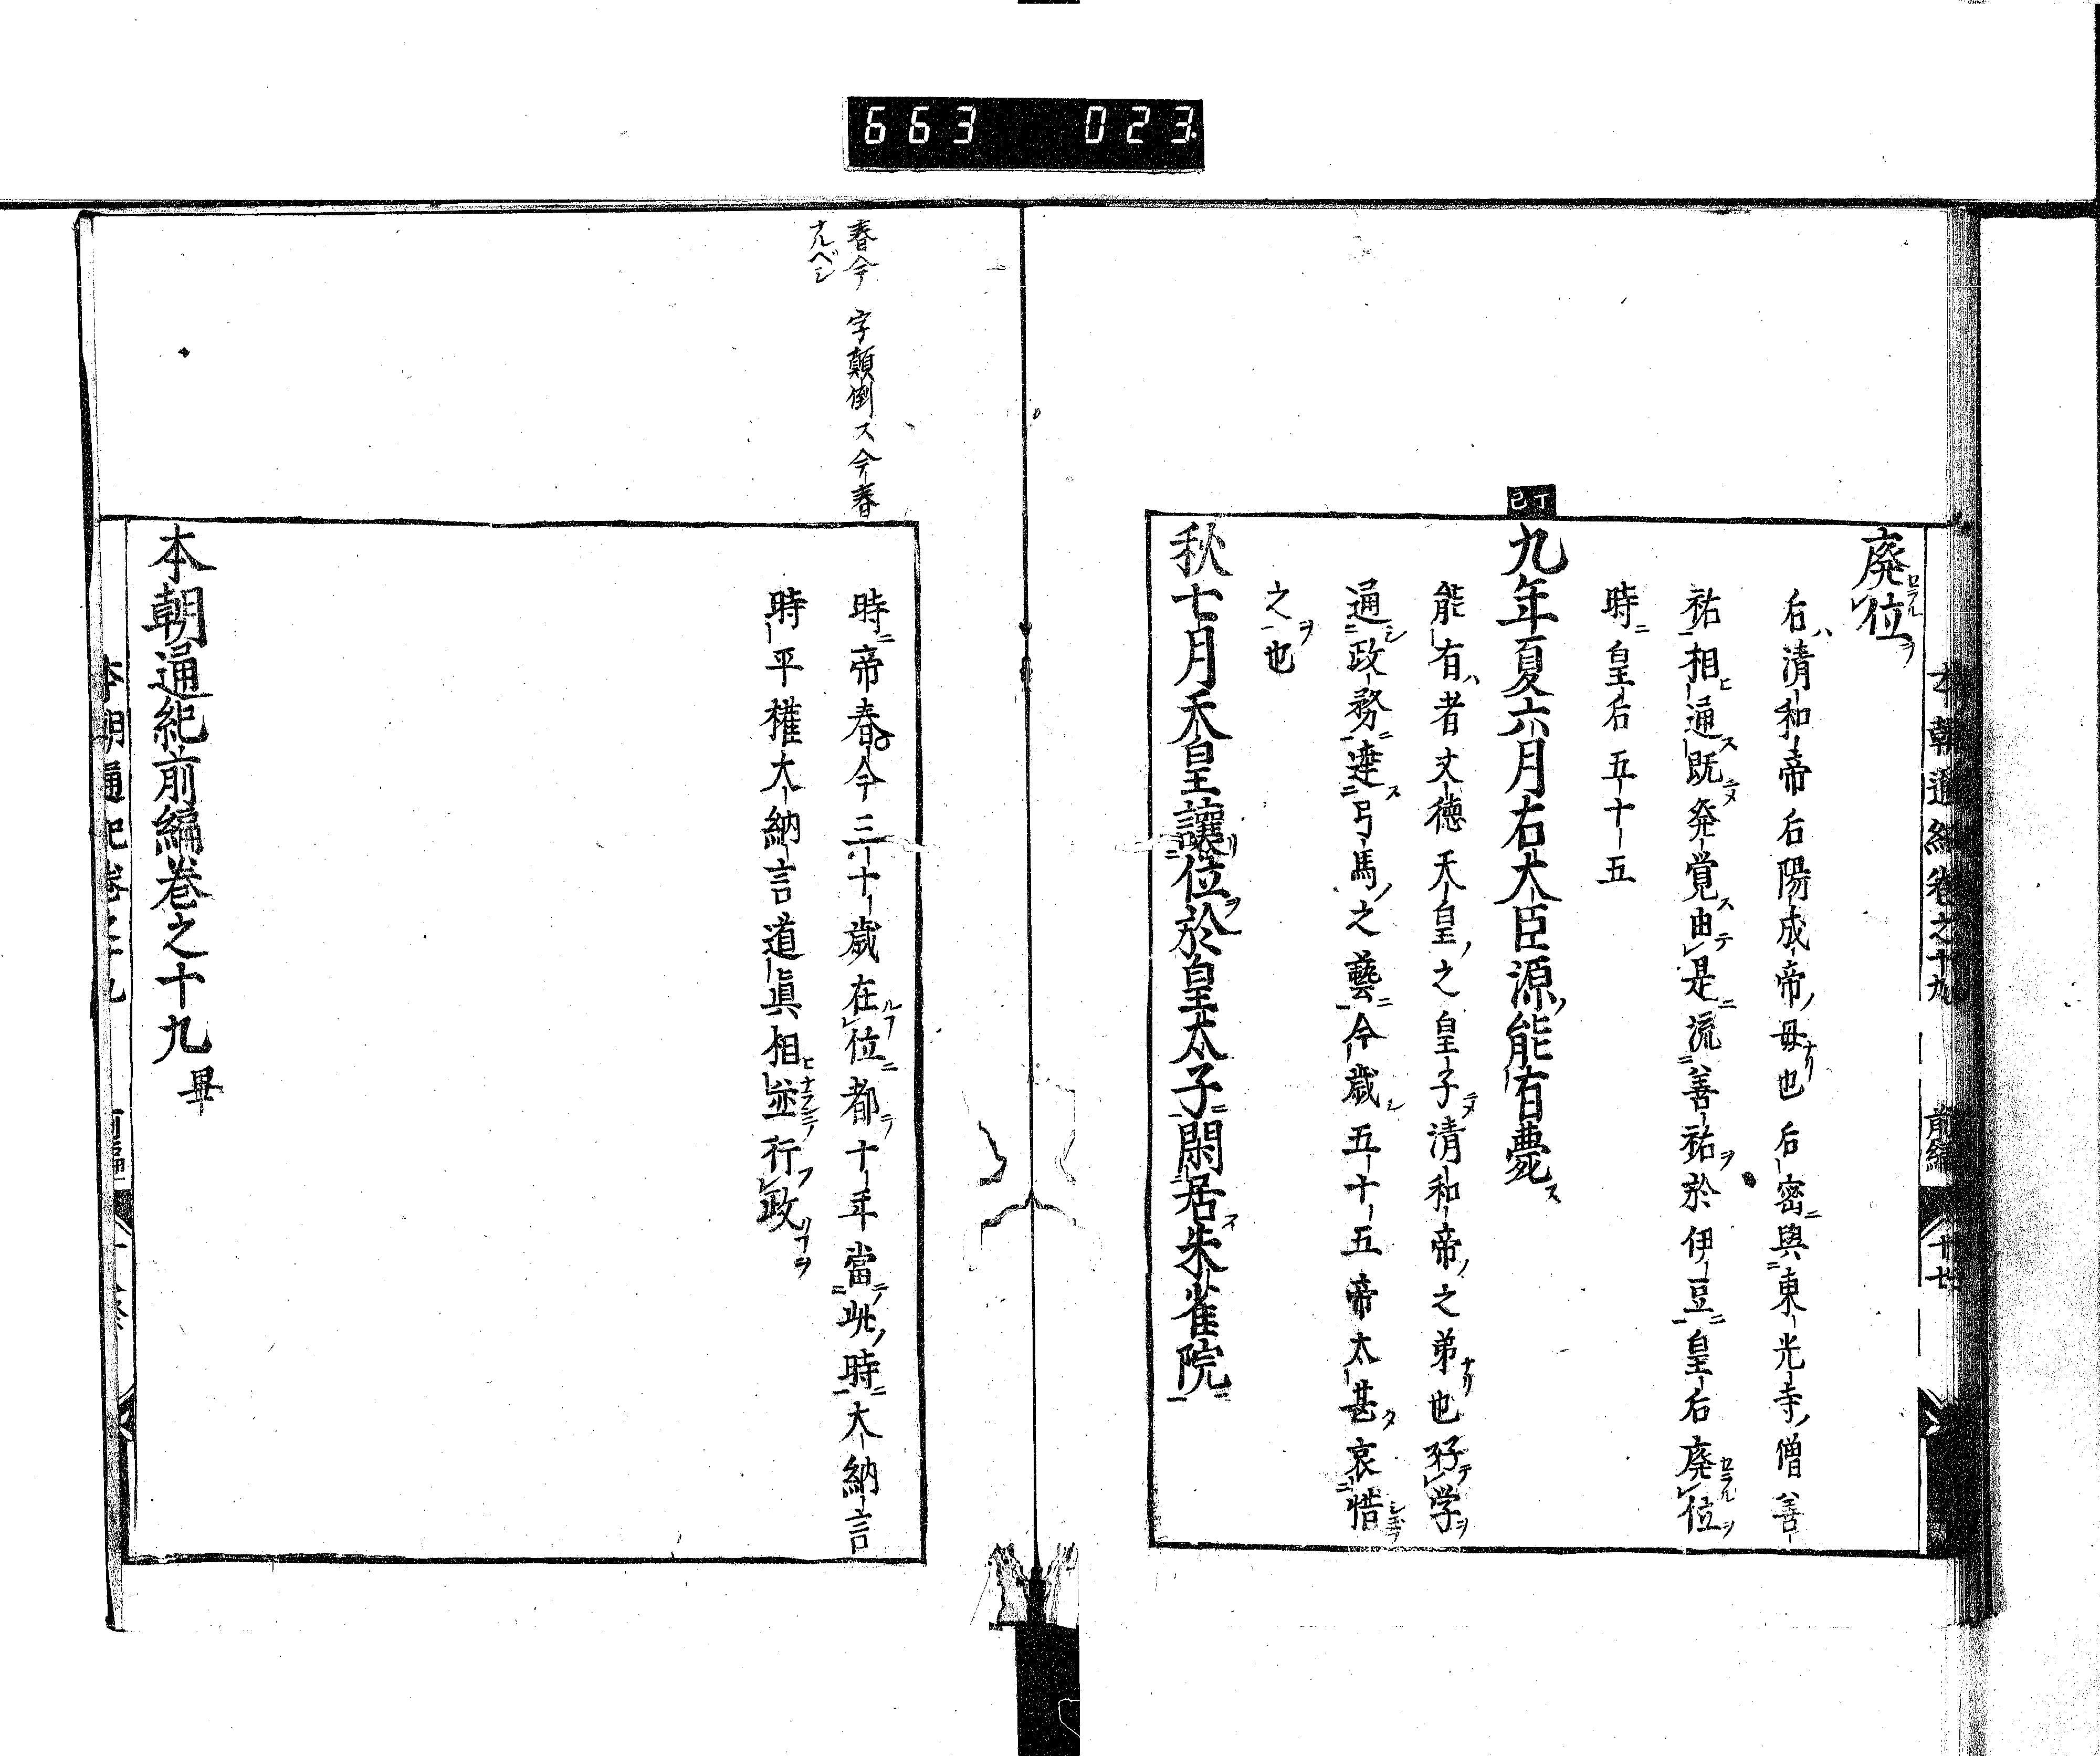 663 023
本朝通紀卷之十九 前編 十七
廃位
后清和帝后陽成帝母也后密與東光寺僧善
祐相通既発覚由是流善祐於伊豆皇后廃位
時皇后五十五
丁巳
九年夏六月右大臣源能有薨
能有者文徳天皇之皇子清和帝之弟也好学
通政務達弓馬之藝今歳五十五帝太甚哀惜
之也
秋七月天皇讓位於皇太子閑居朱雀院
春今 字顛倒ス今春
ナルベシ
時帝春今三十歳在位都十年當此時大納言
時平權大納言道眞相並行政
本朝通紀前編卷之十九畢